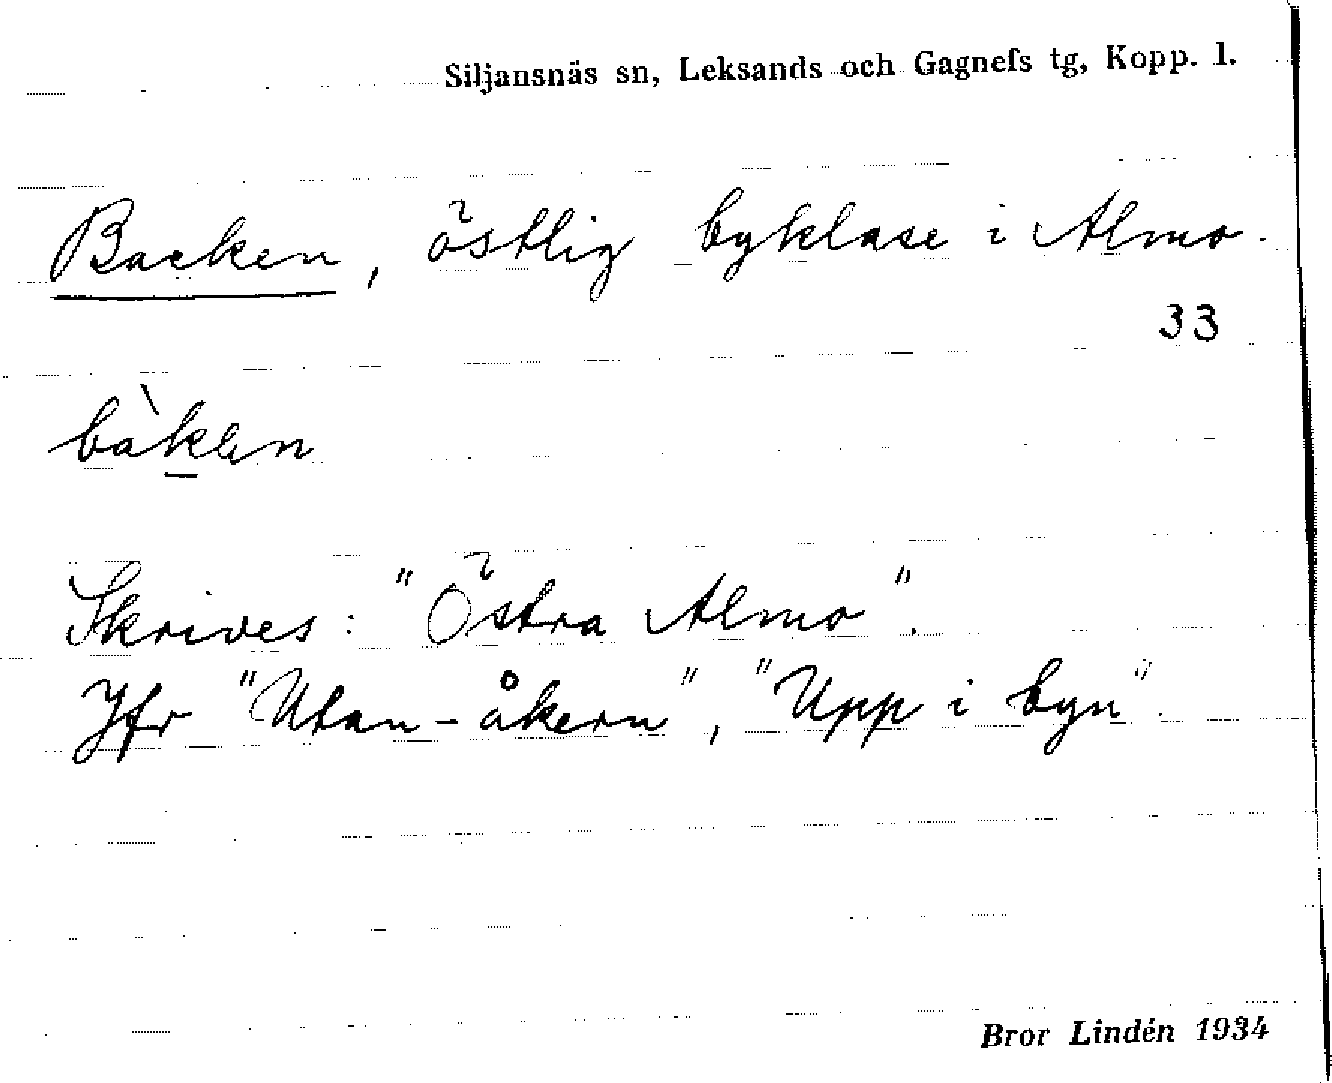 Siljansnäs sn, Leksands och Gagnefs tg, Kopp. l.
Backen, östlig byklase i Almo.
33
bàkɐn
Skrives: "Östra Almo".
Jfr "Utan-åkern", "Upp i byn".
Bror Lindén 1934